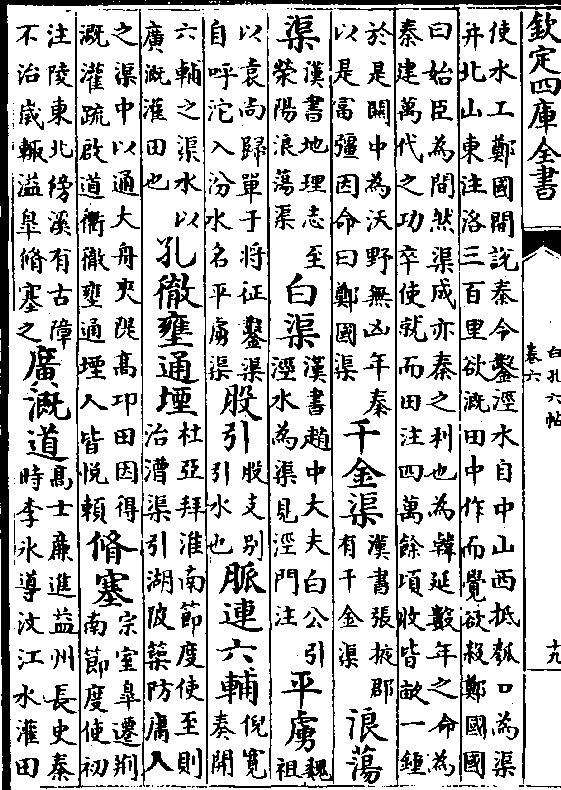 欽定四庫全書
白孔六帖
卷六
十九
使水工鄭國間說秦令鑿涇水自中山西抵瓠口為渠
并北山東注洛三百里欲溉田中作而覺欲殺鄭國國
曰始臣為間然渠成亦秦之利也為韓延數年之命為
秦建萬代之功卒使就而田注四萬餘頃收皆畝一鍾
於是關中為沃野無凶年秦
以是富彊因命曰鄭國渠
千金渠
漢書張掖郡
有千金渠
浪蕩
渠
漢書地理志至
滎陽浪蕩渠
白渠
漢書趙中大夫白公引
涇水為渠見涇門注
平虜
魏
祖
以袁尚歸單于將征鑿渠
自呼沱入汾水名平虜渠
股引
股支别
引水也
脈連六輔
倪寛
奏開
六輔之渠水以
廣溉灌田也
孔徹壅通堙
杜亞拜淮南節度使至則
治漕渠引湖陂築防庸入
之渠中以通大舟夾隄髙卭田因得
溉灌疏啟道衢徹壅通堙人皆悅賴
脩塞
宗室臯遷荆
南節度使初
注陵東北傍溪有古障
不治歲輙溢臯脩塞之
廣溉道
髙士亷進益州長史秦
時李氷導汶江水灌田